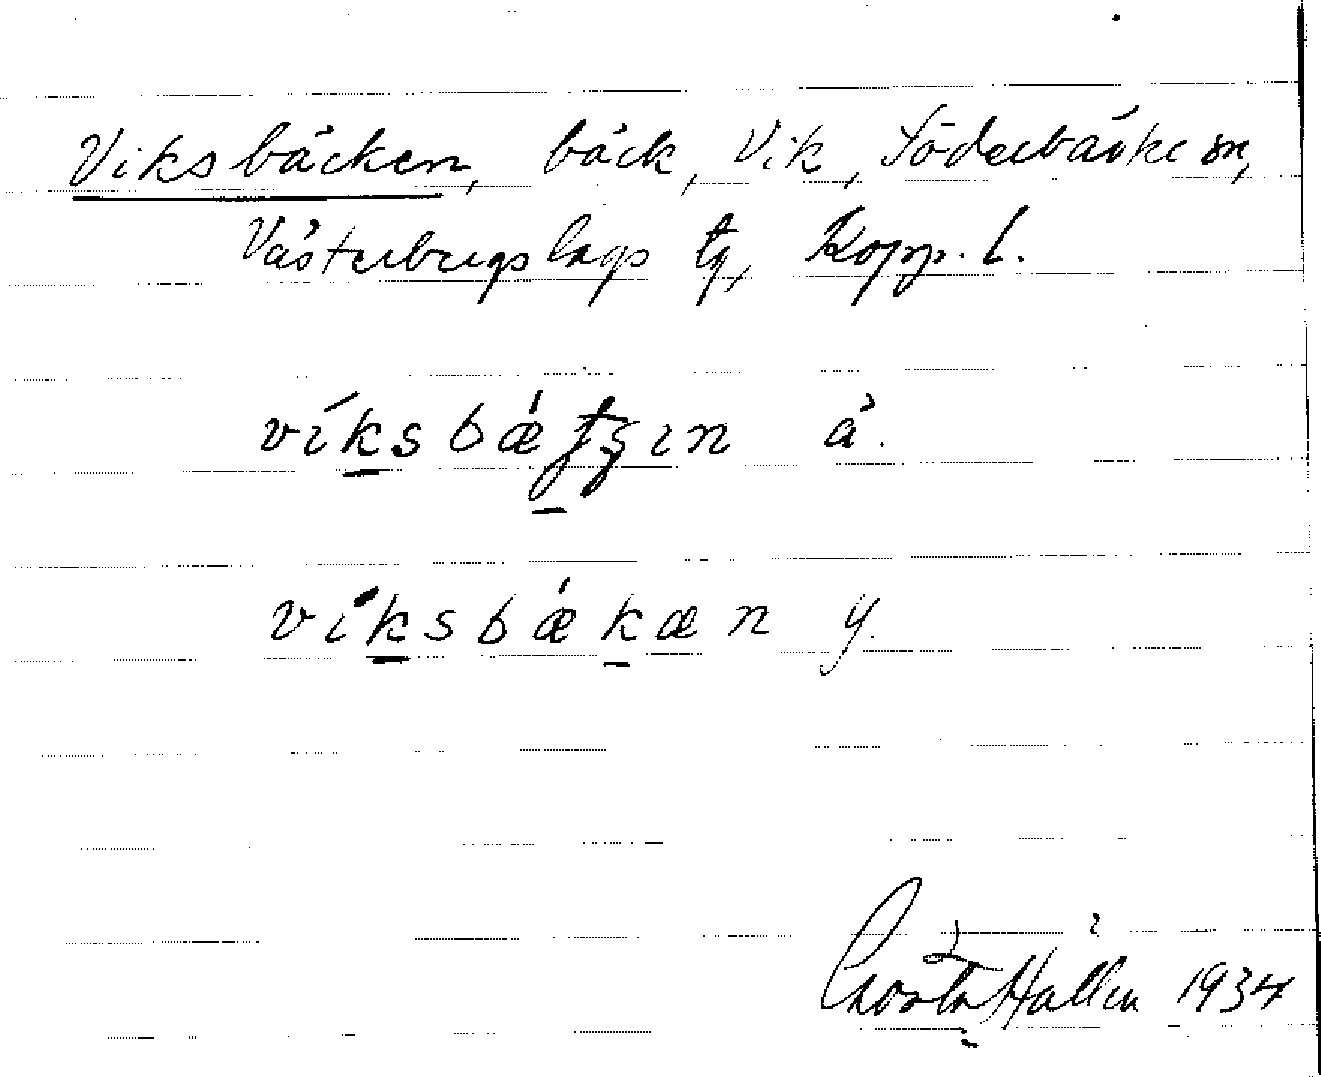 Viksbäcken, bäck, Vik, Söderbärke sn,
Västerbergslags tg, Kopp. l.
víksbǽt̡ʂın ä.
víksbǽkæn y.
Gösta Hallén 1934